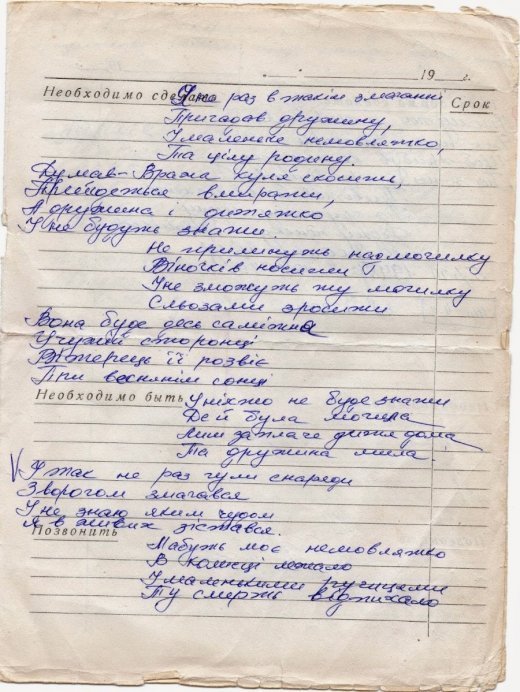 19 г.
Необходимо сделать
Срок
Уже раз в такім змаганні
Пригадав дружину,
І маленьке немовлятко,
Та цілу родину.
Думав - Вража куля скосити,
Прийдеться вмирати,
А дружина і дитятко
І не будуть знати.
Не прилинуть на могилку
Віночків носити
І не зможуть ту могилку
Сльозами зросити
Вона буде десь самітна
У чужій сторонці
Вітерець її розвіє
При веснянім сонці
Необходимо быть
І ніхто не буде знати
Де й була могила
Лиш заплаче дитя дома
Та дружина мила.
V І так не раз гули снаряди
З ворогом змагався
І не знаю яким чудом
Я в живих зістався.
Позвонить
Мабуть моє немовлятко
В колисці лежало
І маленькими ручицями
Ту смерть відпихало